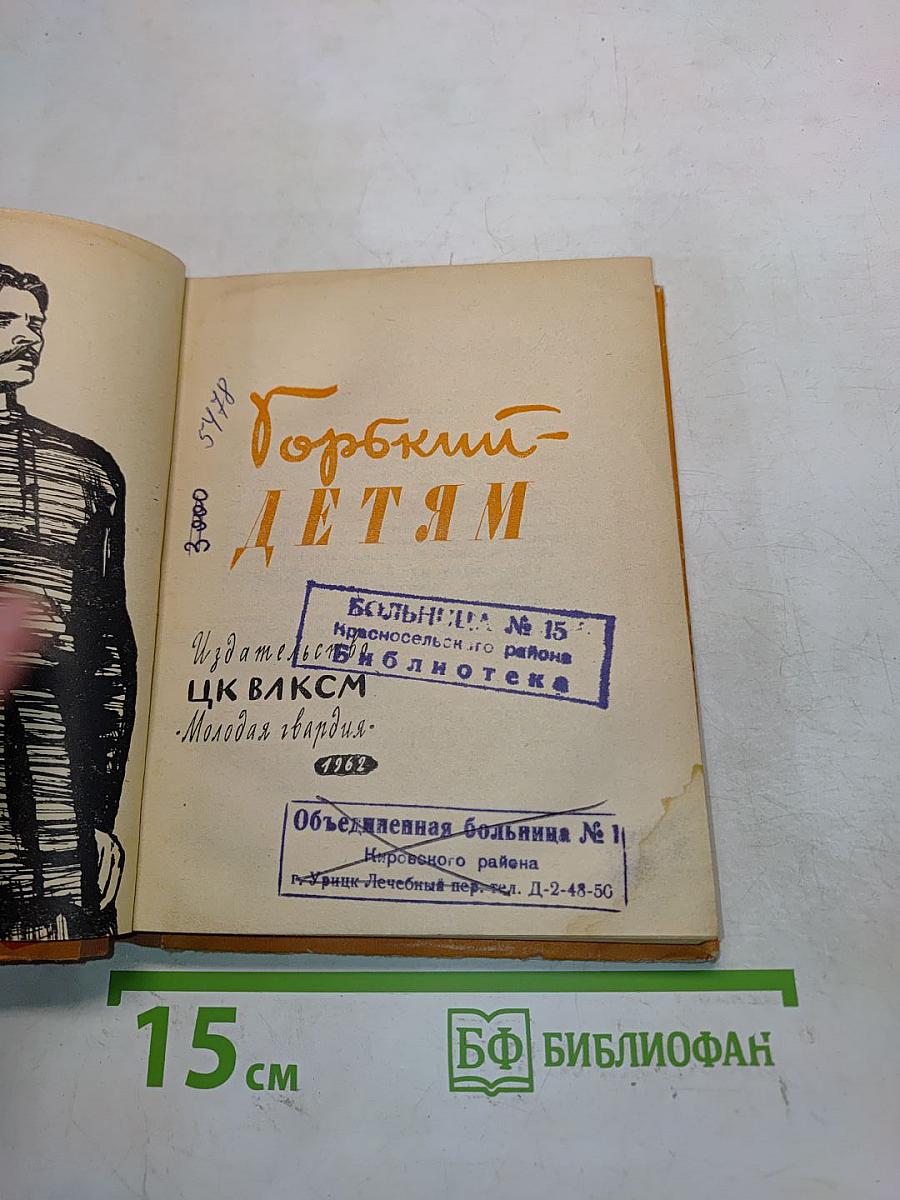 5478
3000
Горький-
ДЕТЯМ
БОЛЬНИЦА № 15
Красносельского района
Библиотека
Издательство
ЦК ВЛКСМ
«Молодая гвардия»
1962
Объединенная больница № 1
Кировского района
г. Урицк Лечебный пер. тел. Д-2-48-50
15 см
БФ БИБЛИОФАН